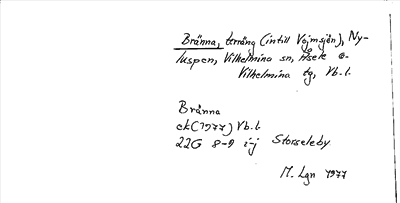 Bränna, terräng (intill Vojmsjön), Ny-
luspen, Vilhelmina sn, Åsele o.
Vilhelmina tg, Vb. l.
Bränna
ek (1977) Vb. l.
22G 8-9 i-j Storseleby
M. Lgn 1977